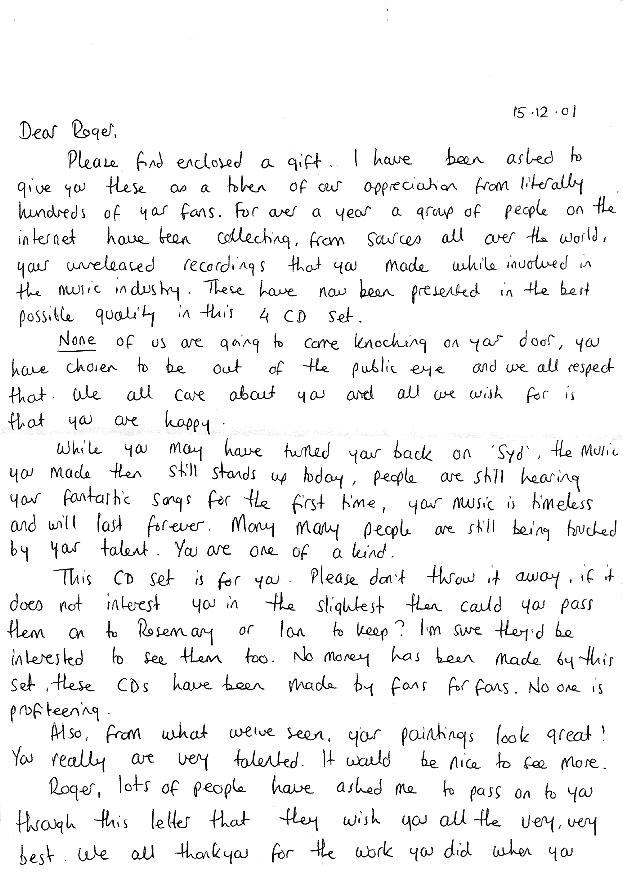 15.12.01
Dear Roger,
Please find enclosed a gift. I have been asked to
give you these as a token of our appreciation from literally
hundreds of your fans. For over a year a group of people on the
internet have been collecting, from sources all over the world,
your unreleased recordings that you made while involved in
the music industry. These have now been presented in the best
possible quality in this 4 CD set.
None of us are going to come knocking on your door, you
have chosen to be out of the public eye and we all respect
that. We all care about you and all we wish for is
that you are happy.
While you may have turned your back on 'Syd', the music
you made then still stands up today, people are still hearing
your fantastic songs for the first time, your music is timeless
and will last forever. Many many people are still being touched
by your talent. You are one of a kind.
This CD set is for you. Please don't throw it away, if it
does not interest you in the slightest then could you pass
them on to Rosemary or Ian to keep? I'm sure they'd be
interested to see them too. No money has been made by this
set, these CDs have been made by fans for fans. No one is
profiteering.
Also, from what we've seen, your paintings look great!
You really are very talented. It would be nice to see more.
Roger, lots of people have asked me to pass on to you
through this letter that they wish you all the very, very
best. We all thankyou for the work you did when you